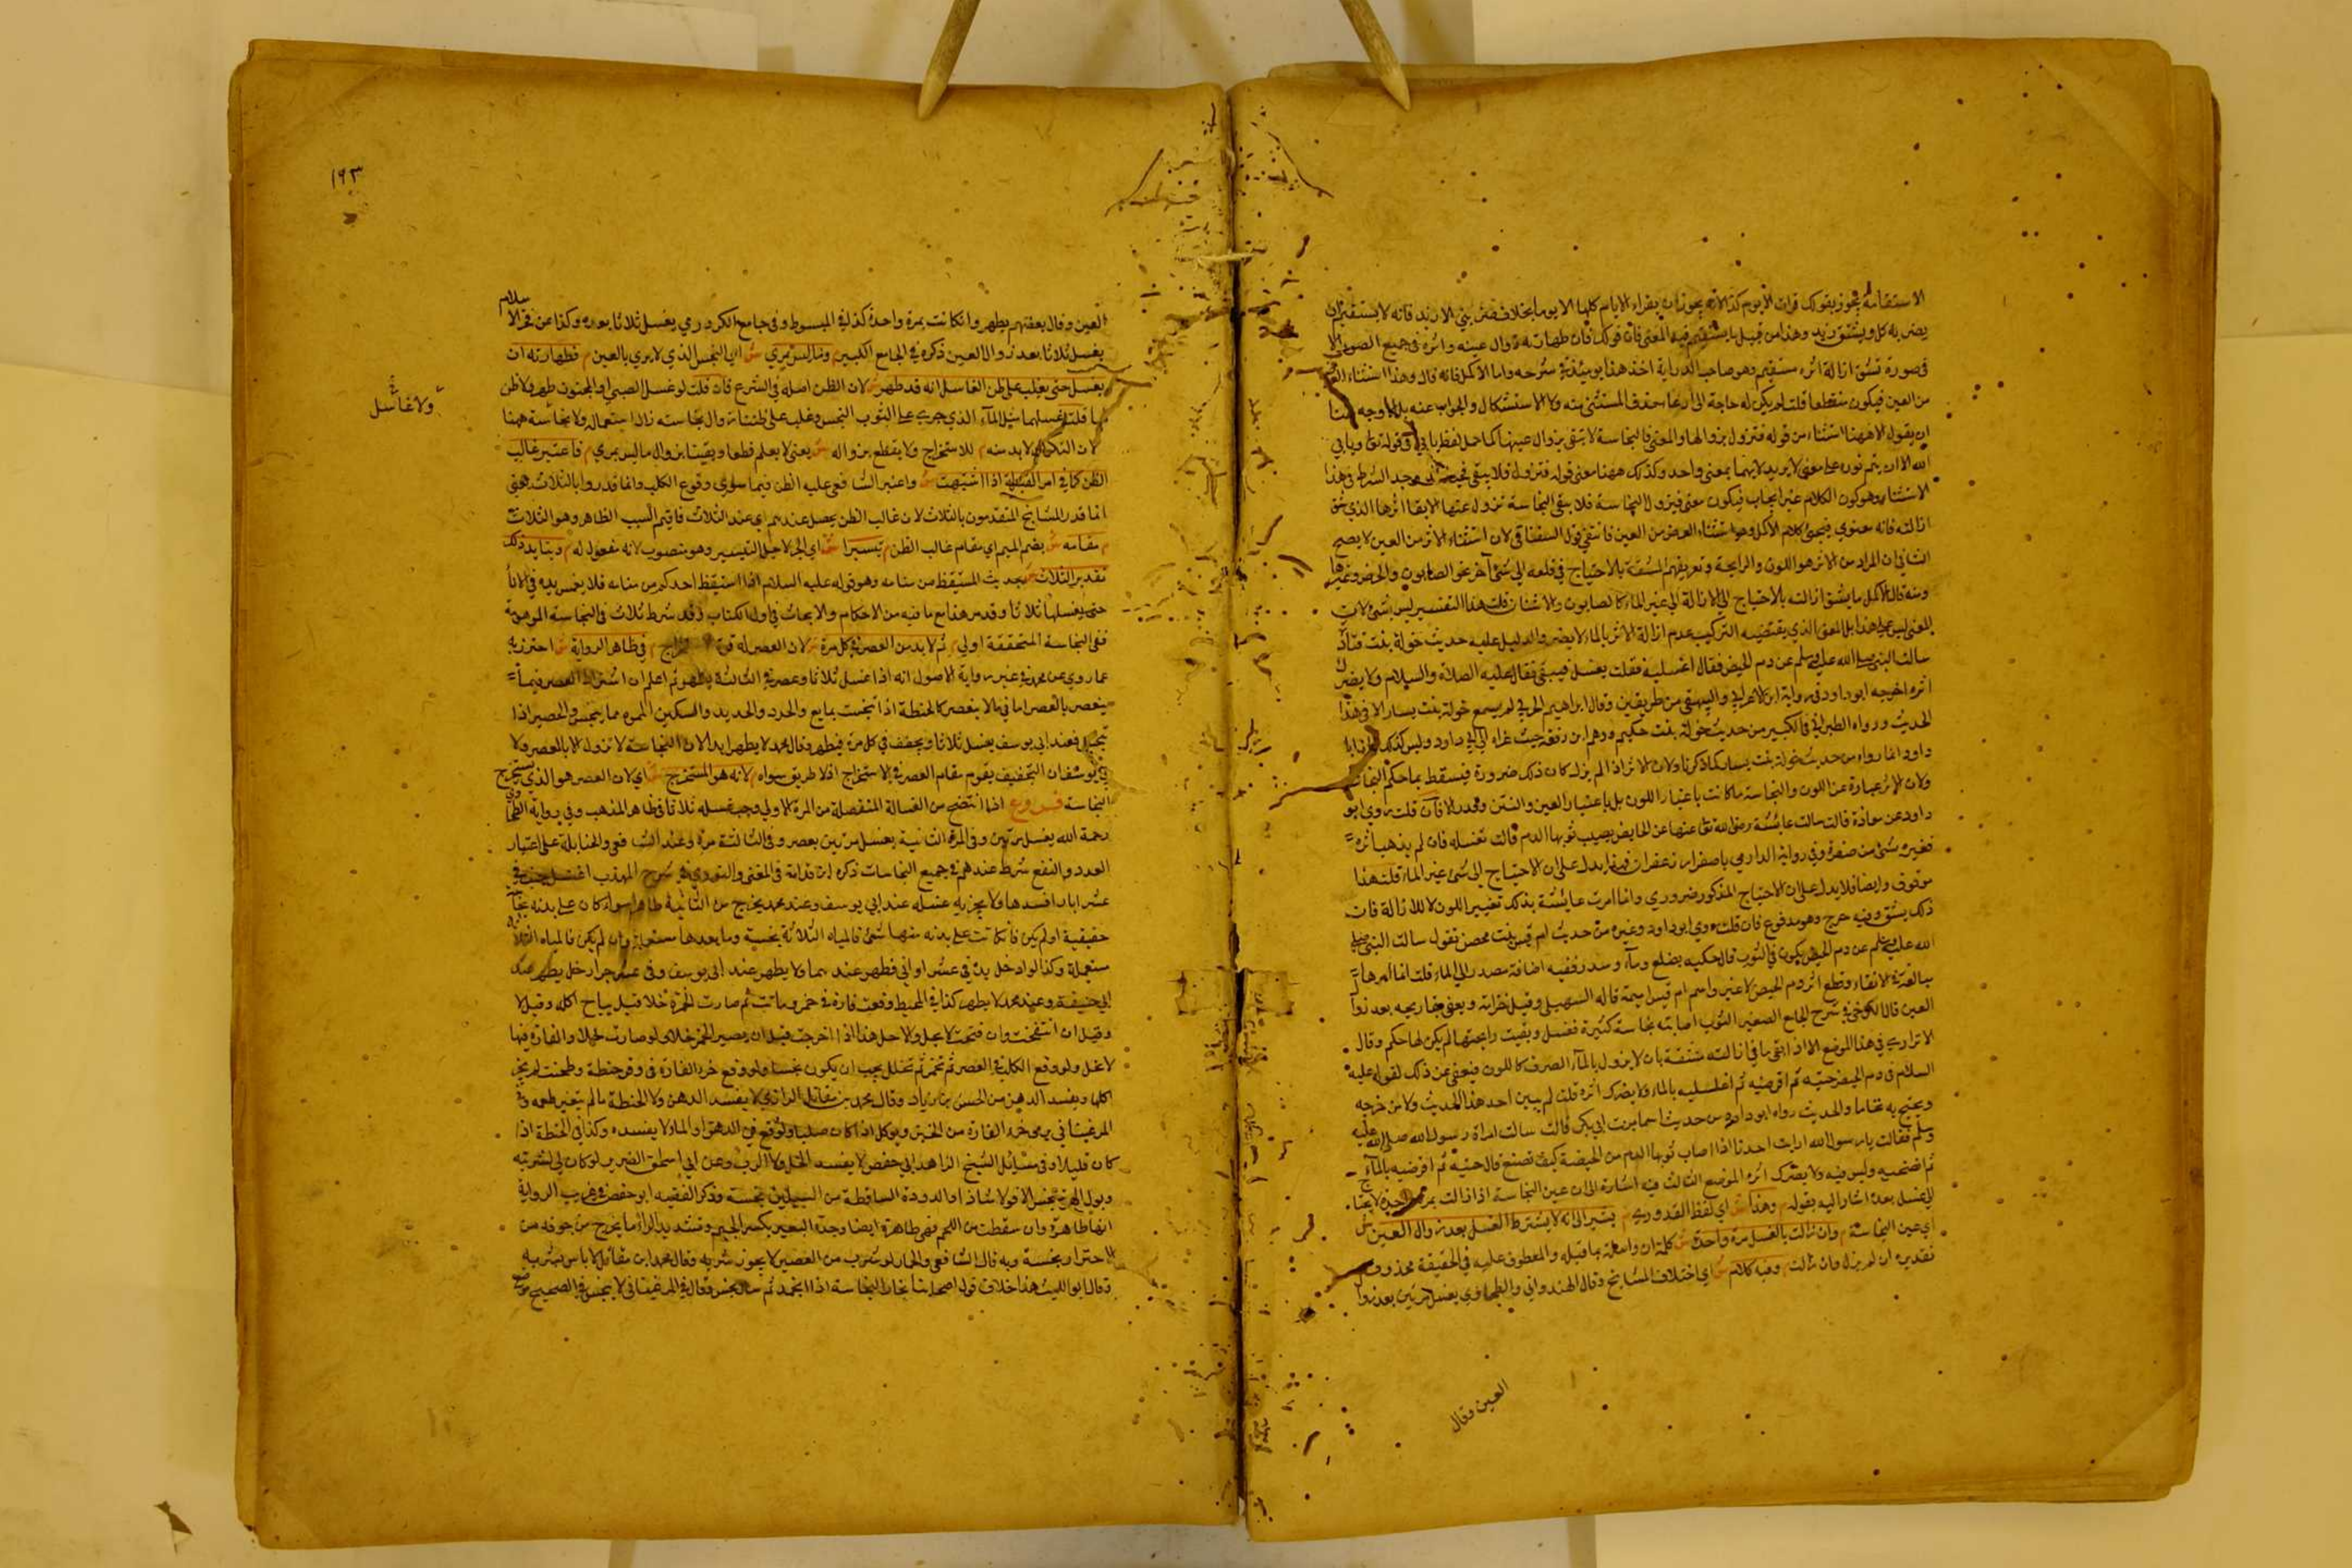 الاستقامة يجوز بقولك قرات الايوم كذا لانه يجوز ان يقراء الايام كلها الا يوما بخلاف ضربني الا زيد فانه لا يستقيم ان
يضربه كل ويستثنى زيد وهذا من قبيل ما يستقيم فيه المعنى فان قولك فان طهارته زوال عينه واثره في جميع الصور الا
في صورة تشق ازالة اثره مستقيم وهو صاحب الدراية اخذ هذا يومئذ في شرحه واما الاكمل فانه قال وهذا استثناء
من العين فيكون منقطعا قلت لم يكن له حاجة الى حذف المستثنى منه ولا الاستشكال والجواب عنه بل الاوجه هنا
ان يقول الا ههنا استثناء من قوله فتزول بزوالها والمعنى فالنجاسة لا تبقى بزوال عينها كما حل لفظ يابى في قوله تعالى ويابى
الله الا ان يتم نوره على معنى لا يريد لانهما بمعنى واحد وكذلك ههنا معنى قوله فتزول فلا يبقى وجد الشرط في هذا
الاستثناء وهو كون الكلام غير ايجاب فيكون معنى فيزول النجاسة فلا يبقى النجاسة تزول عنها الا بقا اثرها الذي شق
ازالته فانه معنوي كلام الاكمل وهو استثناء العرض من العين فانتفى قول السغناقي لان استثناء الاثر من العين لا يصح
الثاني ان المراد من الاثر هو اللون والرايحة وتعريفهم المشقة بالاحتياج في قلعه الى شئ آخر نحو الصابون والحرض وغيرها
ومنه قال الاكمل ما يشق ازالته بالاحتياج الى الازالة الى غير الماء كالصابون والاشنان قلت هذا التفسير ليس بشئ لان
المعنى ليس على هذا بل المعنى الذي يقتضيه التركيب عدم ازالة الاثر بالماء لا يضر والدليل عليه حديث خولة بنت
سالت النبي صلى الله عليه وسلم عن دم الحيض فقال اغسليه فقلت يغسل فيبقى فقال عليه الصلاة والسلام ولا يضرك
اثره اخرجه ابو داود في رواية ابن الاعرابي والبيهقي من طريقين وقال ابراهيم الحربي لم يسمع خولة بنت يسار الا في هذا
الحديث ورواه الطبراني في الكبير من حديث خولة بنت حكيم ووهم ابن رفعة حيث عزاه الى ابي داود وليس كذلك فان ابا
داود انما رواه من حديث خولة بنت يسار كما ذكرنا ولان الاثر اذا لم يزل كان ذلك ضرورة فيسقط بها حكم النجاسة
ولان الاثر عبارة عن اللون والنجاسة ما كانت باعتبار اللون بل باعتبار العين والنتن وقد زالا فان قلت روى ابو
داود عن معاذة قالت سالت عائشة رضي الله تعالى عنها عن الحايض يصيب ثوبها الدم قالت تغسله فان لم يذهب اثره
فغيره بشئ من صفرة وفي رواية الدارمي باصفر او زعفران فهذا يدل على ان الاحتياج الى شئ غير الماء قلت هذا
موقوف وايضا فلا يدل على ان الاحتياج المذكور ضروري وانما امرت عائشة بذلك تغيير اللون لا للازالة فان
ذلك يشق وفيه حرج وهو مدفوع فان قلت روى ابو داود وغيره من حديث ام قيس بنت محصن تقول سالت النبي صلى
الله عليه وسلم عن دم الحيض يكون في الثوب قال حكيه بضلع وماء وسدر ففيه اضافة سدر الى الماء قلت انما امرها
مبالغة في الانقاء وقطع اثر دم الحيض لا غير واسم ام قيس اميمة قاله السهيلي وقيل جذامة ويعفى رايحته بعد زوال
العين قال الكرخي في شرح الجامع الصغير الثوب اصابته نجاسة كثيرة فغسل وبقيت رايحتها لم يكن لها حكم وقال
الاتراري في هذا الموضع الا اذا بقى ما في ازالته مشقة بان لا يزول بالماء الصرف كاللون فيعفى عن ذلك لقوله عليه
السلام في دم الحيض حتيه ثم اقرصيه ثم اغسليه بالماء ولا يضرك اثره قلت لم يبين احد هذا الحديث ولا من خرجه
ويحتج به تماما والحديث رواه ابو داود من حديث اسما بنت ابي بكر قالت سالت امراة رسول الله صلى الله عليه
وسلم فقالت يا رسول الله ارايت احدنا اذا اصاب ثوبها الدم من الحيضة كيف تصنع قال حتيه ثم اقرصيه بالماء
ثم انضحيه وليس فيه ولا يضرك اثره الموضع الثالث فيه اشارة الى ان عين النجاسة اذا زالت بمرة واحدة لا يحتاج
الى غسل بعده اشار اليه بقوله م وهذا ش اي لفظ القدوري م يشير الى انه لا يشترط الغسل بعد زوال العين ش
اي عين النجاسة م وان زالت بالغسل مرة واحدة ش كلمة ان واصلة بما قبله والمعطوف عليه في الحقيقة محذوف
تقديره ان لم يزل وان زالت م وفيه كلام ش اي اختلاف المشايخ وقال الهندواني والطحاوي يغسل مرتين بعد زوال
العين وقال
١٩٣
العين وقال بعضهم يطهر وان كانت بمرة واحدة كذا في المبسوط وفي جامع الكردري يغسل ثلاثا بعده وكذا عن فخر الاسلام
يغسل ثلاثا بعد زوال العين ذكره في الجامع الكبير م وما ليس بمرئي ش اي النجس الذي لا يرى بالعين م فطهارته ان
يغسل حتى يغلب على ظن الغاسل انه قد طهر ش لان الظن اصله في الشرع فان قلت لو غسل الصبي او المجنون طهر ولا ظن
ولا غاسل
لهما قلت غسلهما مثل الماء الذي جرى على الثوب النجس وغلب على ظننا زوال نجاسته زال استعماله ولا نجاسة ههنا
لان التكرار لا بد منه م للاستخراج ولا يقطع بزواله ش يعني لا يعلم قطعا ويقينا بزوال ما ليس بمرئي م فاعتبر غالب
الظن كما في امر القبلة اذا اشتبهت ش واعتبر الشافعي عليه الظن فيما سوى وقوع الكلب وانما قدروا بالثلاث يعني
انما قدر المشايخ المتقدمون بالثلاث لان غالب الظن يحصل عندهم اي عند الثلاث فاقيم السبب الظاهر وهو الثلاث
م مقامه ش بضم الميم اي مقام غالب الظن م تيسيرا ش اي لاجل التيسير وهو منصوب لانه مفعول له م ويتايد ذلك
تقدير الثلاث ش بحديث المستيقظ من منامه وهو قوله عليه السلام اذا استيقظ احدكم من منامه فلا يغمس يده في الاناء
حتى يغسلها ثلاثا وقد مر هذا مع ما فيه من الاحكام والابحاث في اول الكتاب وقد شرط ثلاث في النجاسة الموهومة
ففي النجاسة المتحققة اولى م ثم لا بد من العصر في كل مرة ش لان العصر له قوة الاستخراج م في ظاهر الرواية ش احترز به
عما روي عن محمد في غير رواية الاصول انه اذا غسل ثلاثا وعصر في الثالثة يطهر ثم اعلم ان اشتراط العصر فيما
ينعصر بالعصر اما في ما لا ينعصر كالحنطة اذا تنجست بمايع والخزف والحديد والسكين المموه بما ينجس والحصير اذا
تنجس فعند ابي يوسف يغسل ثلاثا ويجفف في كل مرة فيطهر وقال محمد لا يطهر ابدا لان النجاسة لا تزول الا بالعصر ولا
بي يوسف ان التجفيف يقوم مقام العصر في الاستخراج اذ لا طريق سواه م لانه هو المستخرج ش اي لان العصر هو الذي يستخرج
النجاسة فروع اذا انتضح من الغسالة المنفصلة من المرة الاولى وجب غسله ثلاثا في ظاهر المذهب وفي رواية الطحاوي
رحمة الله يغسل مرتين وفي المرة الثانية يغسل مرتين بعصر وفي الثالثة مرة وعند الشافعي والحنابلة على اعتبار
العدد والنفع شرط عندهم في جميع النجاسات ذكره ابن قدامة في المغني والنووي في شرح المهذب اغتسل جنب في
عشر ابار افسدها ولا يجزيه غسله عند ابي يوسف وعند محمد يخرج من الثانية طاهرا سواء كان على بدنه نجاسة
حقيقية او لم تكن فان كانت على بدنه منها شئ فالمياه الثلاثة نجسة وما بعدها مستعملة وان لم يكن فالمياه الثلاثة
مستعملة وكذا لو ادخل يده في عشر اواني فطهر عندهما ولا يطهر عند ابي يوسف وفي عشر جرار خل يطهر عند
ابي حنيفة وعند محمد لا يطهر كذا في المحيط وقعت فارة في خمر وماتت ثم صارت الخمرة خلا قيل يباح اكله وقيل لا
وقيل ان انتفخت وان فتحت لا يحل والا حل هذا اذا اخرجت قبل ان يصير الخمر خلا لو صارت خلا والفارة فيها
لا تحل ولو وقع الكلب في العصر ثم تخمر ثم تخلل يجب ان يكون نجسا ولو وقع خرء الفارة في وقر حنطة وطحنت لم يجز
اكلها ويفسد الدهن من الحسن بن زياد وقال محمد بن مقاتل الرازي لا يفسد الدهن ولا الحنطة ما لم يتغير طعمه وفي
المرغيناني يرمى خرء الفارة من الخبز ويوكل اذا كان صلبا ولو وقع في الدهن او الماء لا يفسده وكذا في الحنطة اذا
كان قليلا وفي مسائل الشيخ الزاهد ابي حفص لا يفسد الخل ولا الرب وعن ابي اسحق الضرير لو كان لي لشربته
وبول الهرة نجس الا قولا شاذا والدودة الساقطة من السبيلين نجسة وذكر الفقيه ابو حفص في غريب الرواية
انها طاهرة وان سقطت من اللحم فهي طاهرة ايضا وجرة البعير بكسر الجيم وتشديد الراء ما يخرج من جوفه من
الاجترار نجسة وبه قال الشافعي والحمار لو شرب من العصير لا يجوز شربه وقال محمد ابن مقاتل لا باس بشربه
وقال ابو الليث هذا خلاف قول اصحابنا بخار النجاسة اذا انجمد ثم سال نجس وقال في المرغيناني لا ينجس في الصحيح